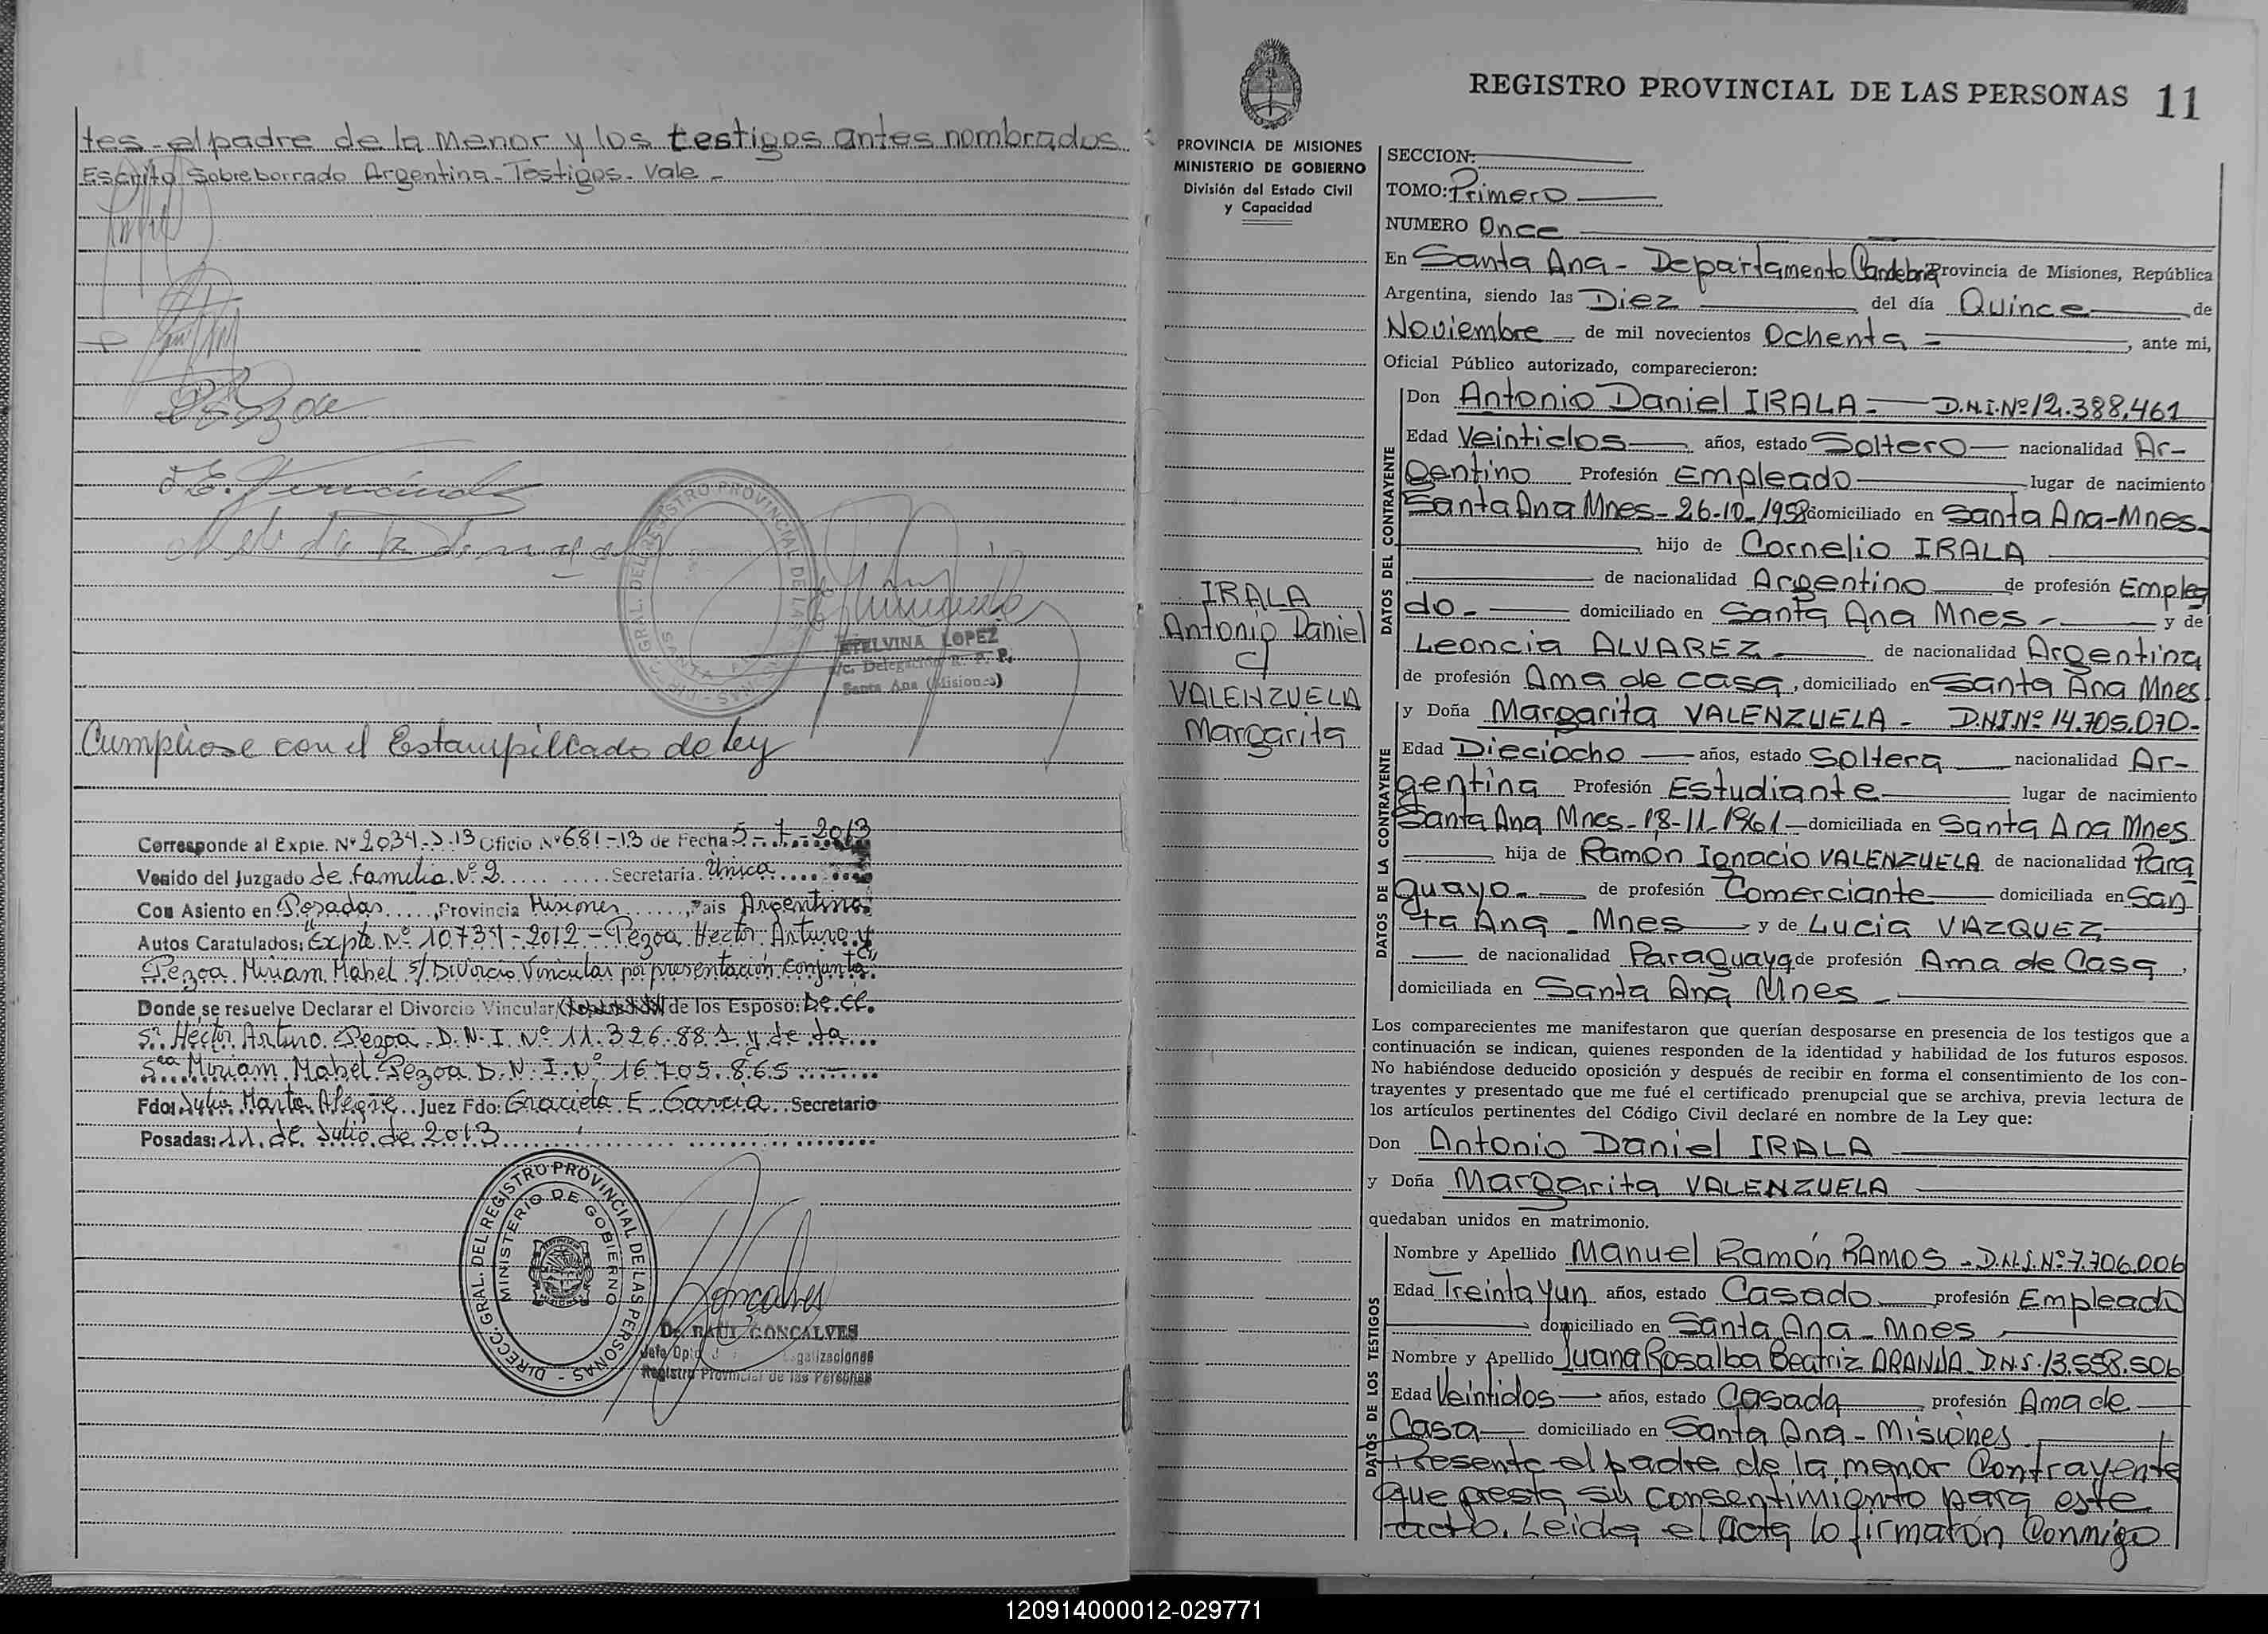 tes - el padre de la Menor y los testigos antes nombrados
Escrito Sobre borrado Argentina - Testigos - Vale -
ETELVINA LOPEZ
a/c. Delegación R. P. P.
Santa Ana (Misiones)
Cumpliose con el Estampillado de ley
Corresponde al Expte. Nº 2034-J-13 Oficio Nº 681-13 de Fecha 5-7-2013
Venido del Juzgado de familia Nº 2 Secretaria Única
Con Asiento en Posadas, Provincia Misiones, Pais Argentina
Autos Caratulados: Expte Nº 10734-2012 - Pezoa Hector Arturo y
Pezoa Miriam Mabel s/ Divorcio Vincular por presentación conjunta
Donde se resuelve Declarar el Divorcio Vincular de los Esposo: De el
Sr. Hector Arturo Pezoa D.N.I. Nº 11.326.881 y de la
Sra Miriam Mabel Pezoa D.N.I. Nº 16.705.865
Fdo: Julia Marta Alegre Juez Fdo: Graciela E. Garcia Secretario
Posadas: 11 de Julio de 2013
DIRECC. GRAL. DEL REGISTRO PROVINCIAL DE LAS PERSONAS
MINISTERIO DE GOBIERNO
Dr. RAUL GONCALVES
Jefe Dpto
Registro Provincial de las Personas
REGISTRO PROVINCIAL DE LAS PERSONAS 11
PROVINCIA DE MISIONES
MINISTERIO DE GOBIERNO
División del Estado Civil
y Capacidad
IRALA
Antonio Daniel
c/
VALENZUELA
Margarita
SECCION:
TOMO: Primero
NUMERO Once
En Santa Ana - Departamento Candelaria Provincia de Misiones, República
Argentina, siendo las Diez del día Quince de
Noviembre de mil novecientos Ochenta - , ante mi,
Oficial Público autorizado, comparecieron:
DATOS DEL CONTRAYENTE
Don Antonio Daniel IRALA - D.N.I. Nº 12.388.461
Edad Veintidos años, estado Soltero nacionalidad Ar-
gentino Profesión Empleado lugar de nacimiento
Santa Ana Mnes - 26-10-1958 domiciliado en Santa Ana - Mnes -
hijo de Cornelio IRALA
de nacionalidad Argentino de profesión Emplea
do - domiciliado en Santa Ana Mnes - y de
Leoncia ALVAREZ de nacionalidad Argentina
de profesión Ama de casa, domiciliado en Santa Ana Mnes
DATOS DE LA CONTRAYENTE
y Doña Margarita VALENZUELA - D.N.I. Nº 14.705.070-
Edad Dieciocho años, estado Soltera nacionalidad Ar-
gentina Profesión Estudiante lugar de nacimiento
Santa Ana Mnes - 18-11-1961 - domiciliada en Santa Ana Mnes
hija de Ramón Ignacio VALENZUELA de nacionalidad Para
guayo - de profesión Comerciante domiciliada en San
ta Ana - Mnes y de Lucia VAZQUEZ
de nacionalidad Paraguaya de profesión Ama de Casa,
domiciliada en Santa Ana Mnes -
Los comparecientes me manifestaron que querían desposarse en presencia de los testigos que a
continuación se indican, quienes responden de la identidad y habilidad de los futuros esposos.
No habiéndose deducido oposición y después de recibir en forma el consentimiento de los con-
trayentes y presentado que me fué el certificado prenupcial que se archiva, previa lectura de
los artículos pertinentes del Código Civil declaré en nombre de la Ley que:
Don Antonio Daniel IRALA
y Doña Margarita VALENZUELA
quedaban unidos en matrimonio.
DATOS DE LOS TESTIGOS
Nombre y Apellido Manuel Ramón RAMOS - D.N.I. Nº 7.706.006
Edad Treinta y un años, estado Casado profesión Empleado
domiciliado en Santa Ana - Mnes -
Nombre y Apellido Juana Rosalba Beatriz ARANDA D.N.I. 13.558.506
Edad Veintidos años, estado Casada profesión Ama de
Casa domiciliado en Santa Ana - Misiones
Presente el padre de la menor Contrayente
que presta su consentimiento para este
acto. Leida el Acta lo firmaron Conmigo
120914000012-029771